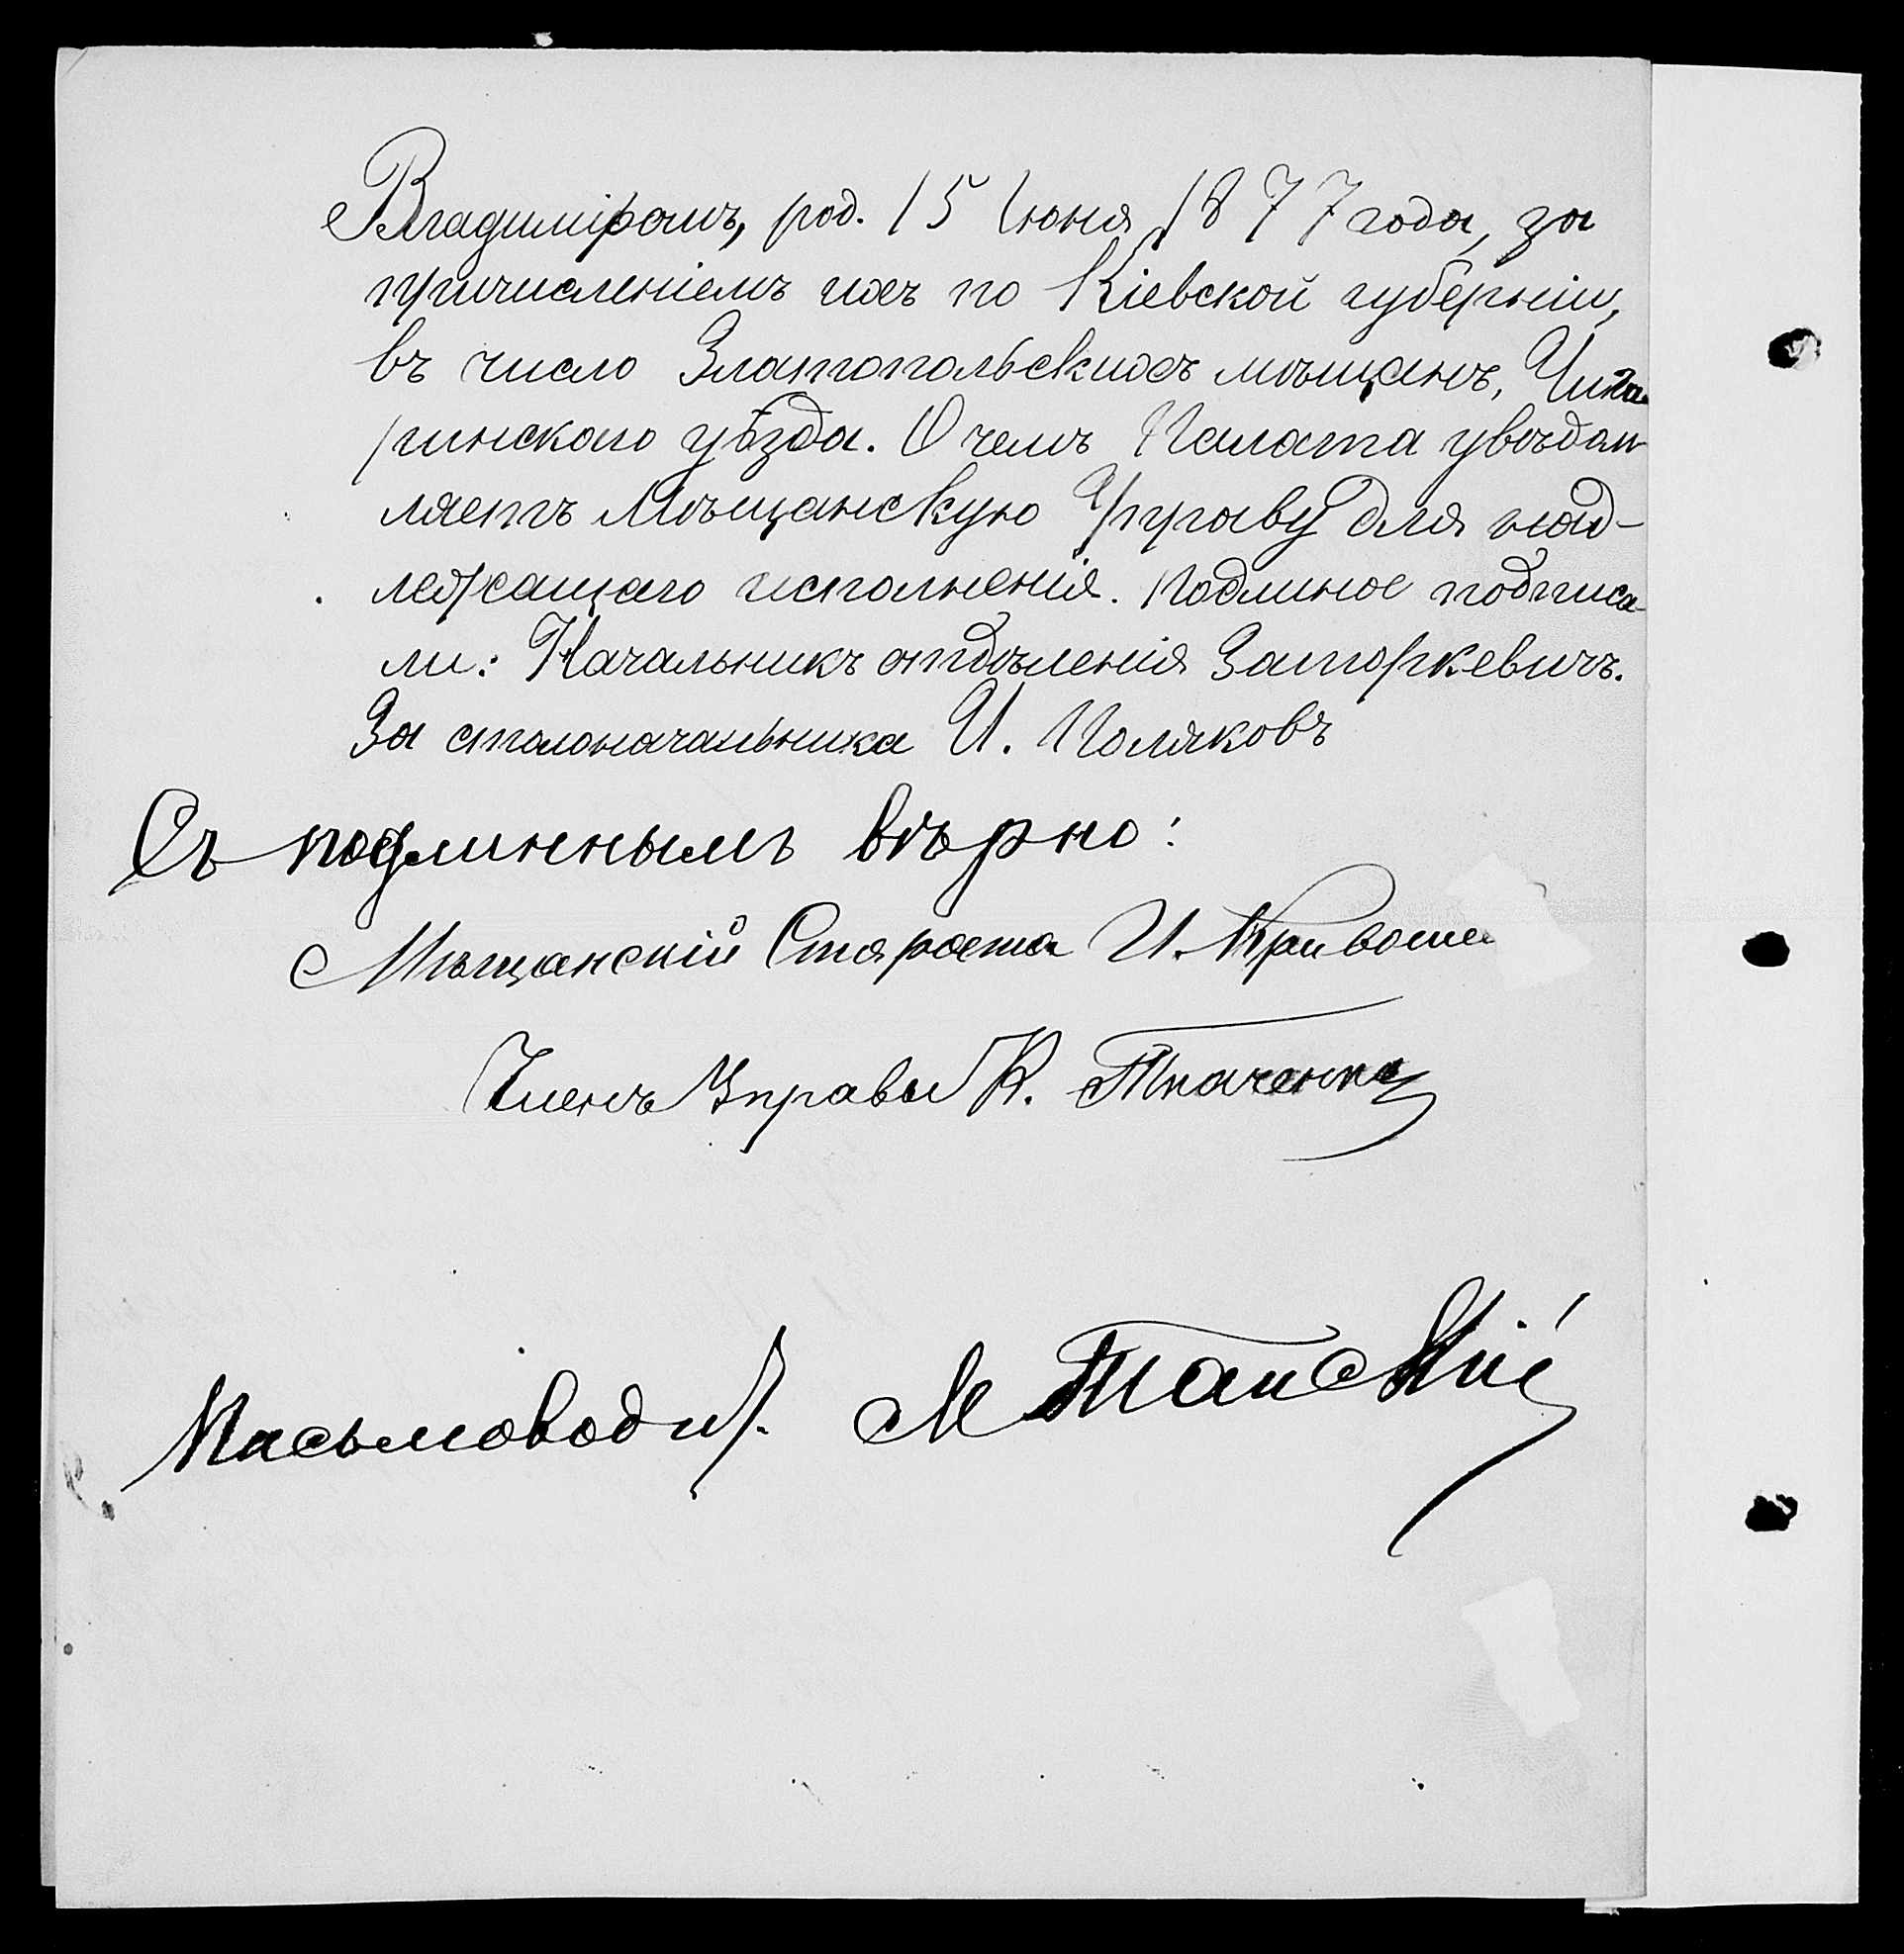 Владиміромъ, род. 15 Іюня 1877 года, за
причисленіемъ ихъ по Кіевской губерніи,
въ число Златопольскихъ мѣщанъ, Чиги-
ринского уѣзда. О чемъ Палата увѣдом-
ляетъ Мѣщанскую Управу для над-
лежащаго исполненія. Подлиное подписа-
ли: Начальникъ отдѣленія Запоркевичъ.
За столоначальника И. Поляковъ
Съ подлиннымъ вѣрно:
Мѣщанскій Староста И.
Членъ Управы К. Ткаченко
Письмоводит. М